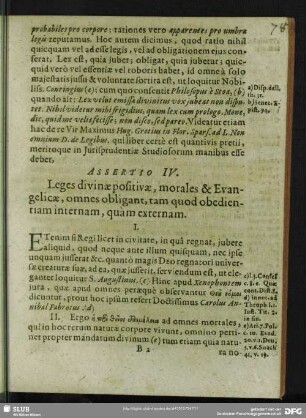 78
probabiles pro corpore; rationes vero apparentes pro umbra
legū reputamus. Hoc autem dicimus, quod ratio nihil
quicquam vel ad esse legis, vel ad obligationem ejus con-
ferat. Lex est, quia jubet; obligat, quia jubetur; quic-
quid verò vel essentiæ vel roboris habet, id omne à solo
majestatis jussu & voluntate sortita est, ut loquitur Nobi-
liss. Conringius (a); cum quo consentit Philosopus è Stoa, (b)
quando ait: Lex velut emissa divinitus vox jubeat non dispu-
tet. Nihil videtur mihi frigidius, quam lex cum prologo. Mone,
dic, quid me velis fecisse; non disco, sed pareo. Videatur etiam
hac de re Vir Maximus Hug. Grotius in Flor. Spars. ad L. Non
omnium D. de Legibus. qui liber certè est quantivis pretii,
meritoque in Jurisprudentiæ Studiosorum manibus esse
debet.
a) Disp. de
b) Senec. E-
ASSERTIO IV.
Leges divinæ positivæ, morales & Evan-
gelicæ, omnes obligant, tam quod obedien-
tiam internam, quam externam.
I.
ETenim si Regi licet in civitate, in quâ regnat, jubere
aliquid, quod neque ante illum quisquam, nec ipse
unquam jusserat &c. quantò magis Deo regnatori univer-
sæ creaturæ suæ, ad ea, quæ jusserit, serviendum est, ut ele-
ganter loquitur S. Augustinus. (c) Hinc apud Xenophontem
jura, quæ apud omnes peræquè observantur
dicuntur, prout hoc ipsum refert Doctissimus Carolus An-
nibal Fabrotus (d)
c) l. 3. Confess.
c. 8. &
II. Ergo ad omnes morales,
qui in hoc rerum naturæ corpore vivunt, omnino perti-
net propter mandatum divinum (e) tum etiam quia natu-
B 2
ra no-